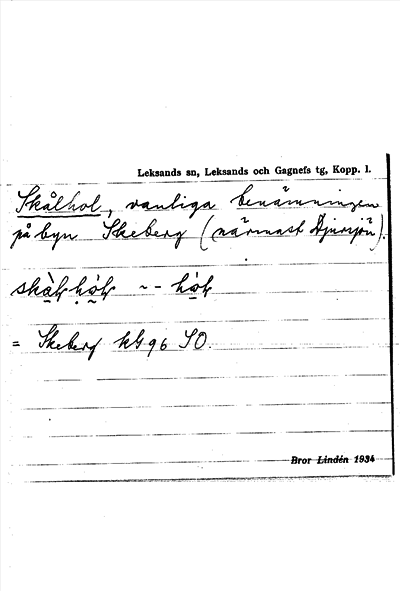 Leksands sn, Leksands och Gagnefs tg, Kopp. l.
Skålhol, vanliga benämningen
på byn Skeberg (närmast Djursjön).
= Skeberg kbl 96 SO.
Bror Lindén 1934